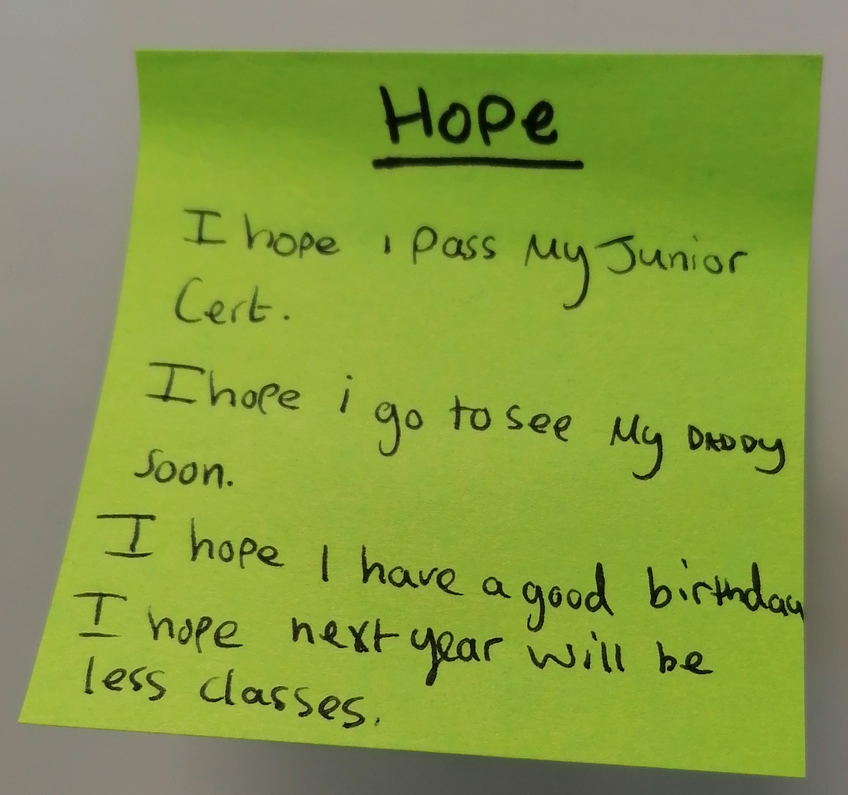 Hope
I hope i pass My Junior
Cert.
I hope i go to see My DADDY
soon.
I hope I have a good birthday
I hope next year will be
less classes.